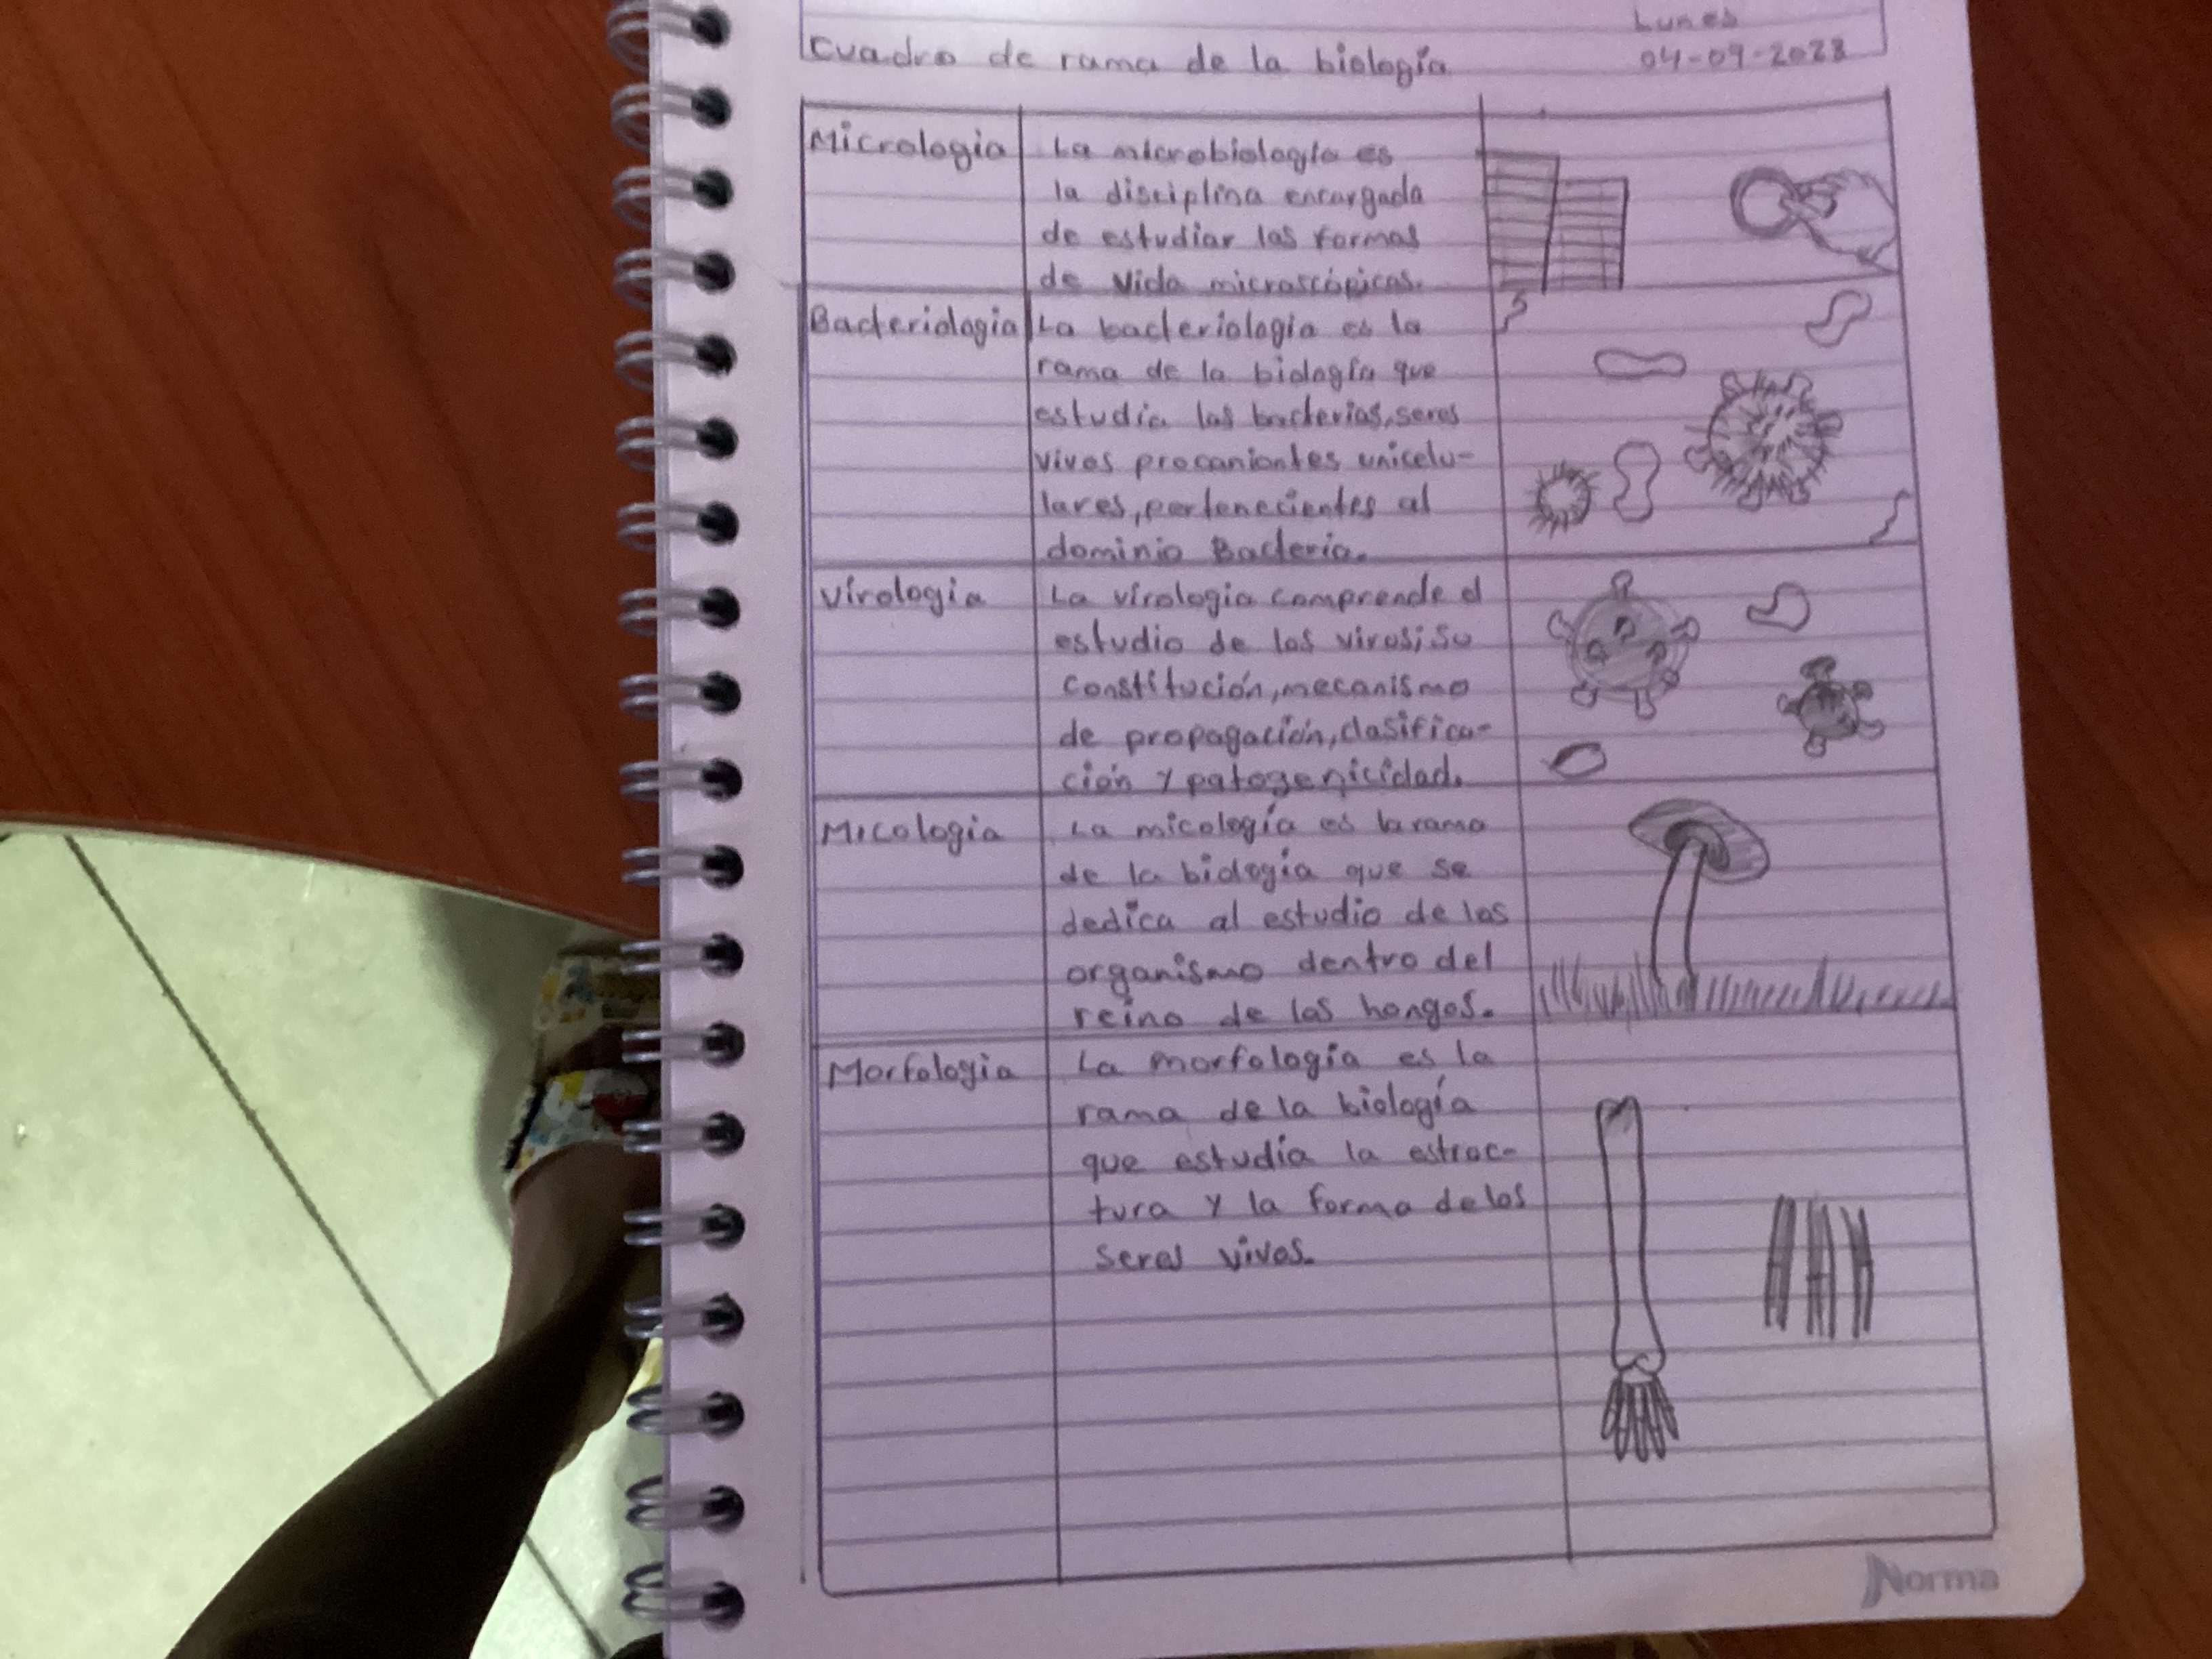 Lunes
Cuadro de rama de la biología
04-09-2023
Micrologia
La microbiología es
la disciplina encargada
de estudiar las formas
de vida microscópicas.
Bacteriologia
La bacteriologia es la
rama de la biología que
estudia las bacterias, seres
vivos procaniontes unicelu-
lares, pertenecientes al
dominio Bacteria.
Virologia
La virologia comprende el
estudio de los virus; su
constitución, mecanismo
de propagación, clasifica-
ción y patogenicidad.
Micologia
La micología es la rama
de la biología que se
dedica al estudio de los
organismo dentro del
reino de los hongos.
Morfologia
La morfología es la
rama de la biología
que estudia la estruc-
tura y la forma de los
seres vivos.
Norma